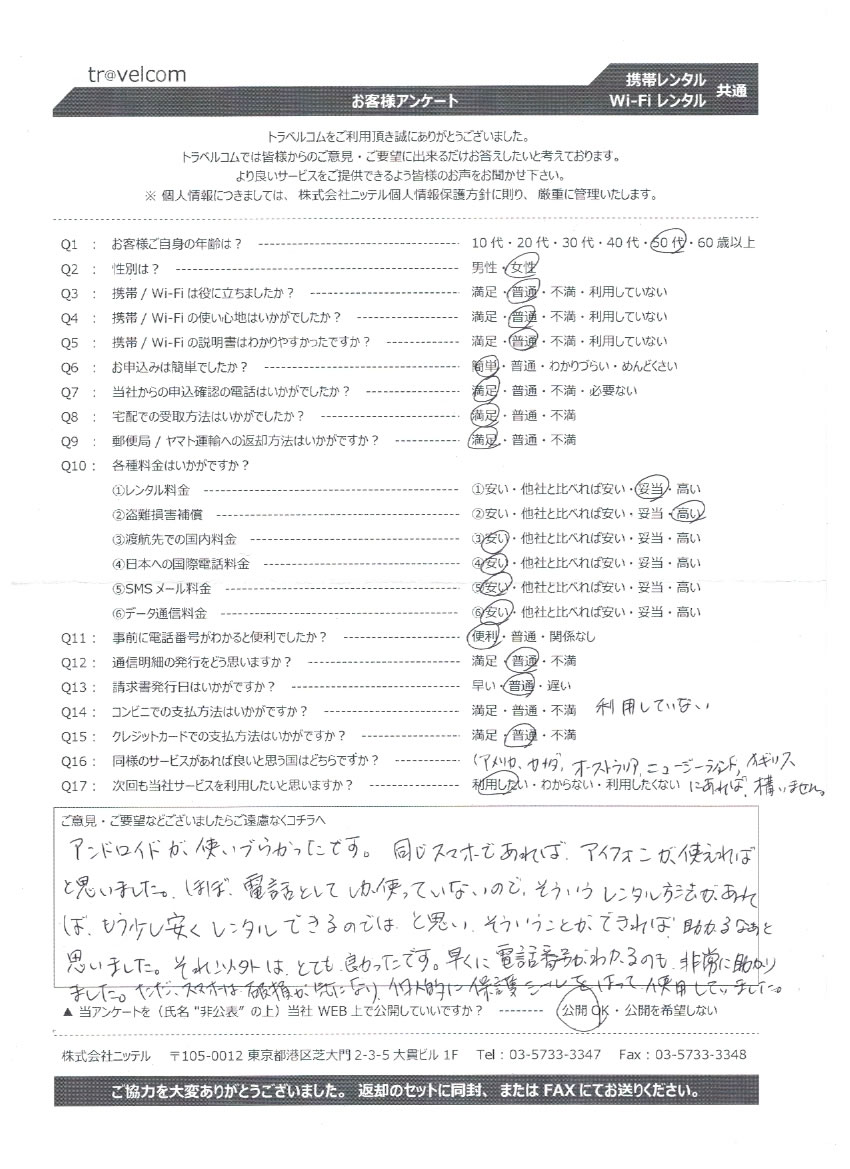 tr@velcom
お客様アンケート
携帯レンタル
Wi-Fi レンタル
共通
トラベルコムをご利用頂き誠にありがとうございました。
トラベルコムでは皆様からのご意見・ご要望に出来るだけお答えしたいと考えております。
より良いサービスをご提供できるよう皆様のお声をお聞かせ下さい。
※ 個人情報につきましては、株式会社ニッテル個人情報保護方針に則り、厳重に管理いたします。
Q1 : お客様ご自身の年齢は? 10代・20代・30代・40代・50代・60歳以上
Q2 : 性別は? 男性・女性
Q3 : 携帯 / Wi-Fi は役に立ちましたか? 満足・普通・不満・利用していない
Q4 : 携帯 / Wi-Fi の使い心地はいかがでしたか? 満足・普通・不満・利用していない
Q5 : 携帯 / Wi-Fi の説明書はわかりやすかったですか? 満足・普通・不満・利用していない
Q6 : お申込みは簡単でしたか? 簡単・普通・わかりづらい・めんどくさい
Q7 : 当社からの申込確認の電話はいかがでしたか? 満足・普通・不満・必要ない
Q8 : 宅配での受取方法はいかがでしたか? 満足・普通・不満
Q9 : 郵便局 / ヤマト運輸への返却方法はいかがですか? 満足・普通・不満
Q10 : 各種料金はいかがですか?
①レンタル料金 ①安い・他社と比べれば安い・妥当・高い
②盗難損害補償 ②安い・他社と比べれば安い・妥当・高い
③渡航先での国内料金 ③安い・他社と比べれば安い・妥当・高い
④日本への国際電話料金 ④安い・他社と比べれば安い・妥当・高い
⑤SMSメール料金 ⑤安い・他社と比べれば安い・妥当・高い
⑥データ通信料金 ⑥安い・他社と比べれば安い・妥当・高い
Q11 : 事前に電話番号がわかると便利でしたか? 便利・普通・関係なし
Q12 : 通信明細の発行をどう思いますか? 満足・普通・不満
Q13 : 請求書発行日はいかがですか? 早い・普通・遅い
Q14 : コンビニでの支払方法はいかがですか? 満足・普通・不満 利用していない
Q15 : クレジットカードでの支払方法はいかがですか? 満足・普通・不満
Q16 : 同様のサービスがあれば良いと思う国はどちらですか? (アメリカ、カナダ、オーストラリア、ニュージーランド、イギリス
Q17 : 次回も当社サービスを利用したいと思いますか? 利用したい・わからない・利用したくない にあれば、構いません。
ご意見・ご要望などございましたらご遠慮なくコチラへ
アンドロイドが、使いづらかったです。同じスマホであれば、アイフォンが、使えれば
と思いました。ほぼ、電話としてしか使っていないので、そういうレンタル方法があれ
ば、もう少し安くレンタルできるのでは、と思い、そういうことができれば、助かるなあと
思いました。それ以外は、とても良かったです。早くに電話番号がわかるのも、非常に助かり
ました。ただ、スマホは破損が気になり、個人的に保護シールをはって使用していました。
▲ 当アンケートを(氏名 “非公表” の上)当社 WEB 上で公開していいですか? 公開OK・公開を希望しない
株式会社ニッテル 〒105-0012 東京都港区芝大門 2-3-5 大貫ビル 1F Tel : 03-5733-3347 Fax : 03-5733-3348
ご協力を大変ありがとうございました。返却のセットに同封、または FAX にてお送りください。